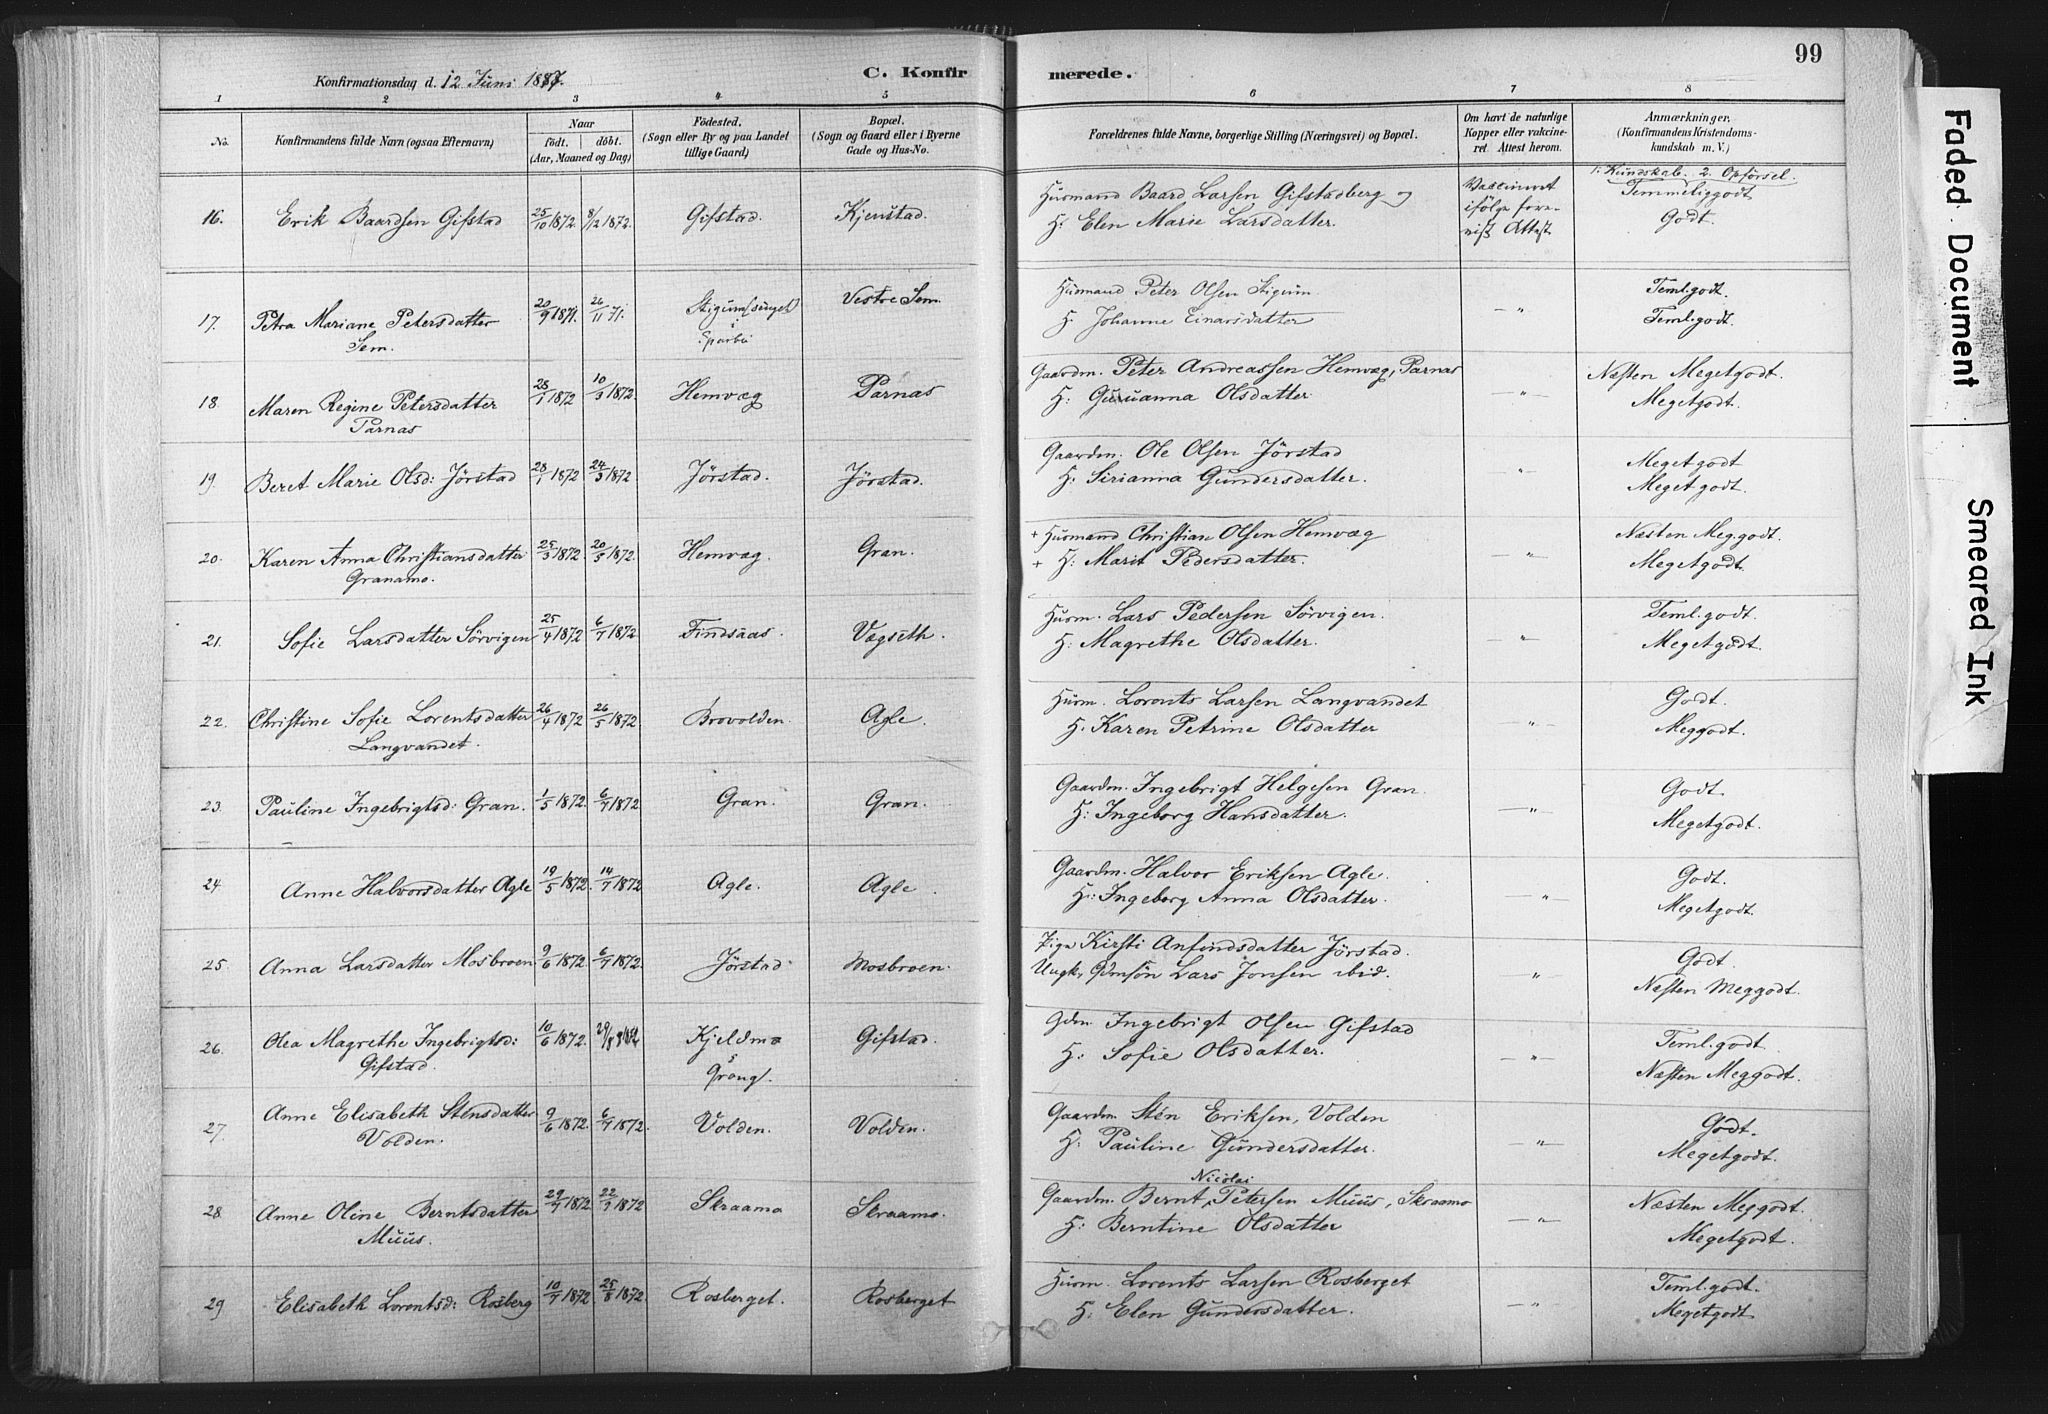 99
Konfirmationsdag d. 12 Juni 1887.
C. Konfirmerede.
1 2 3 4 5 6 7 8
No.
Konfirmandens fulde Navn (ogsaa Efternavn)
Naar
født. døbt.
(Aar, Maaned og Dag)
Fødested.
(Sogn eller By og paa Landet
tillige Gaard)
Bopæl.
(Sogn og Gaard eller i Byerne
Gade og Hus-No.
Forældrenes fulde Navne, borgerlige Stilling (Næringsvei) og Bopæl.
Om havt de naturlige
Kopper eller vakcine-
ret. Attest herom.
Anmærkninger.
(Konfirmandens Kristendoms-
kundskab m. V.)
1. Kundskab. 2. Opførsel.
16. Erik Baardsen Gifstad 25/10 1872 8/12 1872. Gifstad. Kjenstad. Husmand Baard Larsen Gifstadberg og Vaccineret Temmeliggodt
H. Elen Marie Larsdatter. ifølge fore- Godt.
vist Attest
17. Petra Mariane Petersdatter 20/9 1871. 26/11 71. Stigum (sunget) Vestre Sem. Husmand Peter Olsen Stigum — " — Teml.godt.
Sem. i Sparbu H. Johanne Einarsdatter Teml.godt.
18. Maren Regine Petersdatter 28/1 1872 10/3 1872. Hemvæg Parnas Gaardm. Peter Andreassen Hemvæg, Parnas — " — Næsten Megetgodt.
Parnas H: Guruanna Olsdatter. Megetgodt.
19. Beret Marie Olsd: Jørstad 28/1 1872 24/3 1872 Jørstad. Jørstad. Gaardm. Ole Olsen Jørstad — " — Megetgodt
H. Sirianna Gundersdatter. Megetgodt.
20. Karen Anna Christiansdatter 25/3 1872 20/5 1872. Hemvæg. Gran. + Husmand Christian Olsen Hemvæg — " — Næsten Meg.godt.
Granamo. + H: Marit Pedersdatter. Megetgodt.
21. Sofie Larsdatter Sørvigen 25/4 1872 6/7 1872 Findsaas. Vægseth. Husm. Lars Pedersen Sørvigen. — " — Teml.godt.
H. Magrethe Olsdatter. Megetgodt.
22. Christine Sofie Lorentsdatter 26/4 1872 26/5 1872 Brovolden. Agle. Husm. Lorents Larsen Langvandet — " — Godt.
Langvandet. H. Karen Petrine Olsdatter Meggodt.
23. Pauline Ingebrigtsd: Gran. 1/5 1872 6/7 1872 Gran. Gran. Gaardm. Ingebrigt Helgesen Gran — " — Godt.
H: Ingeborg Hansdatter. Megetgodt.
24. Anne Halvorsdatter Agle 19/5 1872. 14/7 1872 Agle. Agle. Gaardm. Halvor Eriksen Agle. — " — Godt.
H: Ingeborg Anna Olsdatter. Megetgodt.
25. Anna Larsdatter Mosbroen 9/6 1872. 6/7 1872. Jørstad. Mosbroen. Pige Kirsti Anfindsdatter Jørstad. — " — Godt
Ungk. Gdmsøn Lars Jonsen ibid. Næsten Meggodt.
26. Olea Magrethe Ingebrigtsd: 10/6 1872. Kjeldmo Gifstad. Gdm. Ingebrigt Olsen Gifstad — " — Teml.godt
Gifstad. i Grong. H: Sofie Olsdatter. Næsten Meggodt.
27. Anne Elisabeth Stensdatter 9/6 1872. 6/7 1872. Volden. Volden. Gaardm. Sten Eriksen, Volden — " — Godt.
Volden. H. Pauline Gundersdatter. Megetgodt.
28. Anne Oline Berntsdatter 29/7 1872 22/9 1872 Skraamo Skraamo. Gaardm. Bernt Nicolai Petersen Muus, Skraamo — " — Næsten Meggodt.
Muus. H: Berntine Olsdatter Megetgodt.
29 Elisabeth Lorentsd: Rosberg 10/7 1872. 25/8 1872. Rosberget. Rosberget Husm. Lorents Larsen Rosberget — " — Teml.godt.
H. Elen Gundersdatter. Megetgodt
Faded Document
Smeared Ink